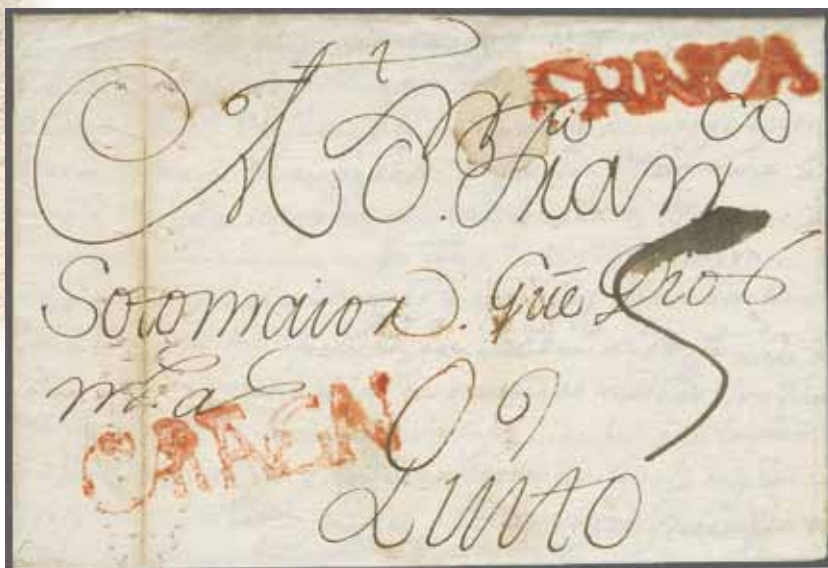 FRANCA
A D. Fran.co
Sotomaior. Gūe Dios
m.s a.s
CARTAGEN
Quito
5